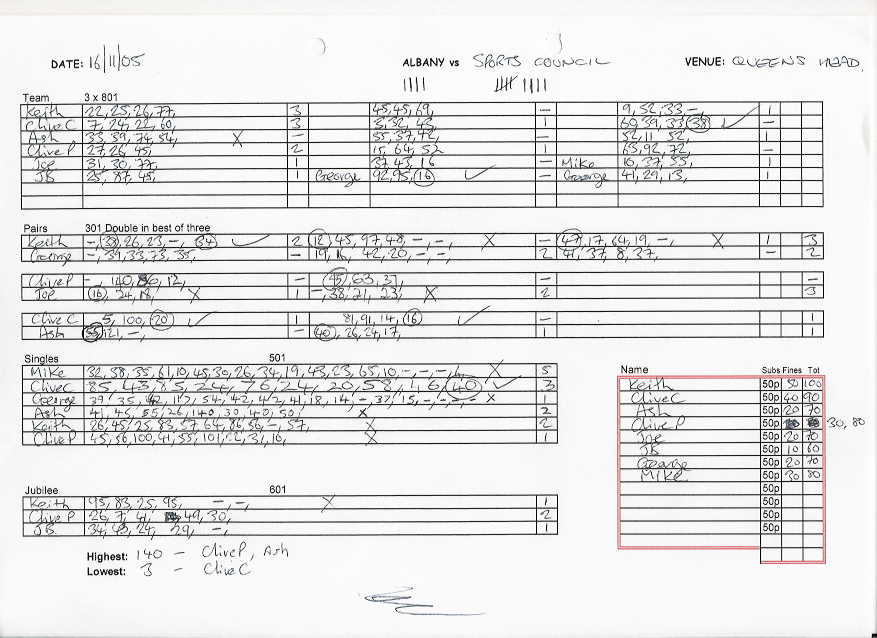 DATE: 16/11/05 ALBANY vs SPORTS COUNCIL VENUE: QUEENS HEAD
Team 3 x 801
Keith 22, 25, 26, 77, 3 45, 45, 69, – 9, 52, 33 –, 1
Clive C 7, 24, 22, 60, 3 3, 32, 43, 1 60, 39, 33, 38 –
Ash 33, 39, 74, 54, X – 55, 37, 72, – 52, 11, 52, 1
Clive P 27, 26, 45, 2 15, 64, 52 1 63, 92, 72, –
Joe 31, 30, 77, 1 37, 43, 16 – Mike 16, 37, 55, 1
JB 25, 87, 45, 1 George 92, 95, 16 – George 41, 29, 13, 1
Pairs 301 Double in best of three
Keith –, 38, 26, 23, –, 34 2 12, 45, 97, 48, –, –, X – 47, 17, 64, 19, –, X 1 3
George –, 39, 33, 73, 35, – 19, 16, 42, 20, –, –, 2 41, 37, 8, 37, – 2
Clive P –, 140, 36, 12, – 45, 63, 37, – –
Joe 16, 24, 18, X 1 –, 38, 21, 23, X 2 3
Clive C 5, 100, 20 – 81, 91, 14, 16 1 1
Ash 55, 121, –, – 40, 26, 24, 17, 1 1
Singles 501
Mike 32, 38, 35, 61, 10, 45, 30, 26, 34, 19, 43, 23, 65, 10, –, –, –, X 5
Clive C 85, 43, 85, 24, 76, 24, 20, 58, 46, 40 3
George 39, 35, 42, 117, 54, 42, 42, 41, 18, 14, –, 37, 15, –, –, – X 1
Ash 41, 45, 55, 26, 140, 30, 40, 50, X 2
Keith 26, 45, 25, 83, 57, 64, 86, 56, –, 57, X 2
Clive P 45, 56, 100, 41, 55, 101, 22, 31, 16, X 1
Name Subs Fines Tot
Keith 50p 50 100
Clive C 50p 40 90
Ash 50p 20 70
Clive P 50p 30, 80
Joe 50p 20 70
JB 50p 10 60
George 50p 20 70
Mike 50p 30 80
50p
50p
50p
50p
50p
Jubilee 601
Keith 95, 83, 25, 95, –, –, X 1
Clive P 26, 7, 41, 49, 30, 2
JB 34, 43, 24, 29, –, 1
Highest: 140 – Clive P, Ash
Lowest: 3 – Clive C